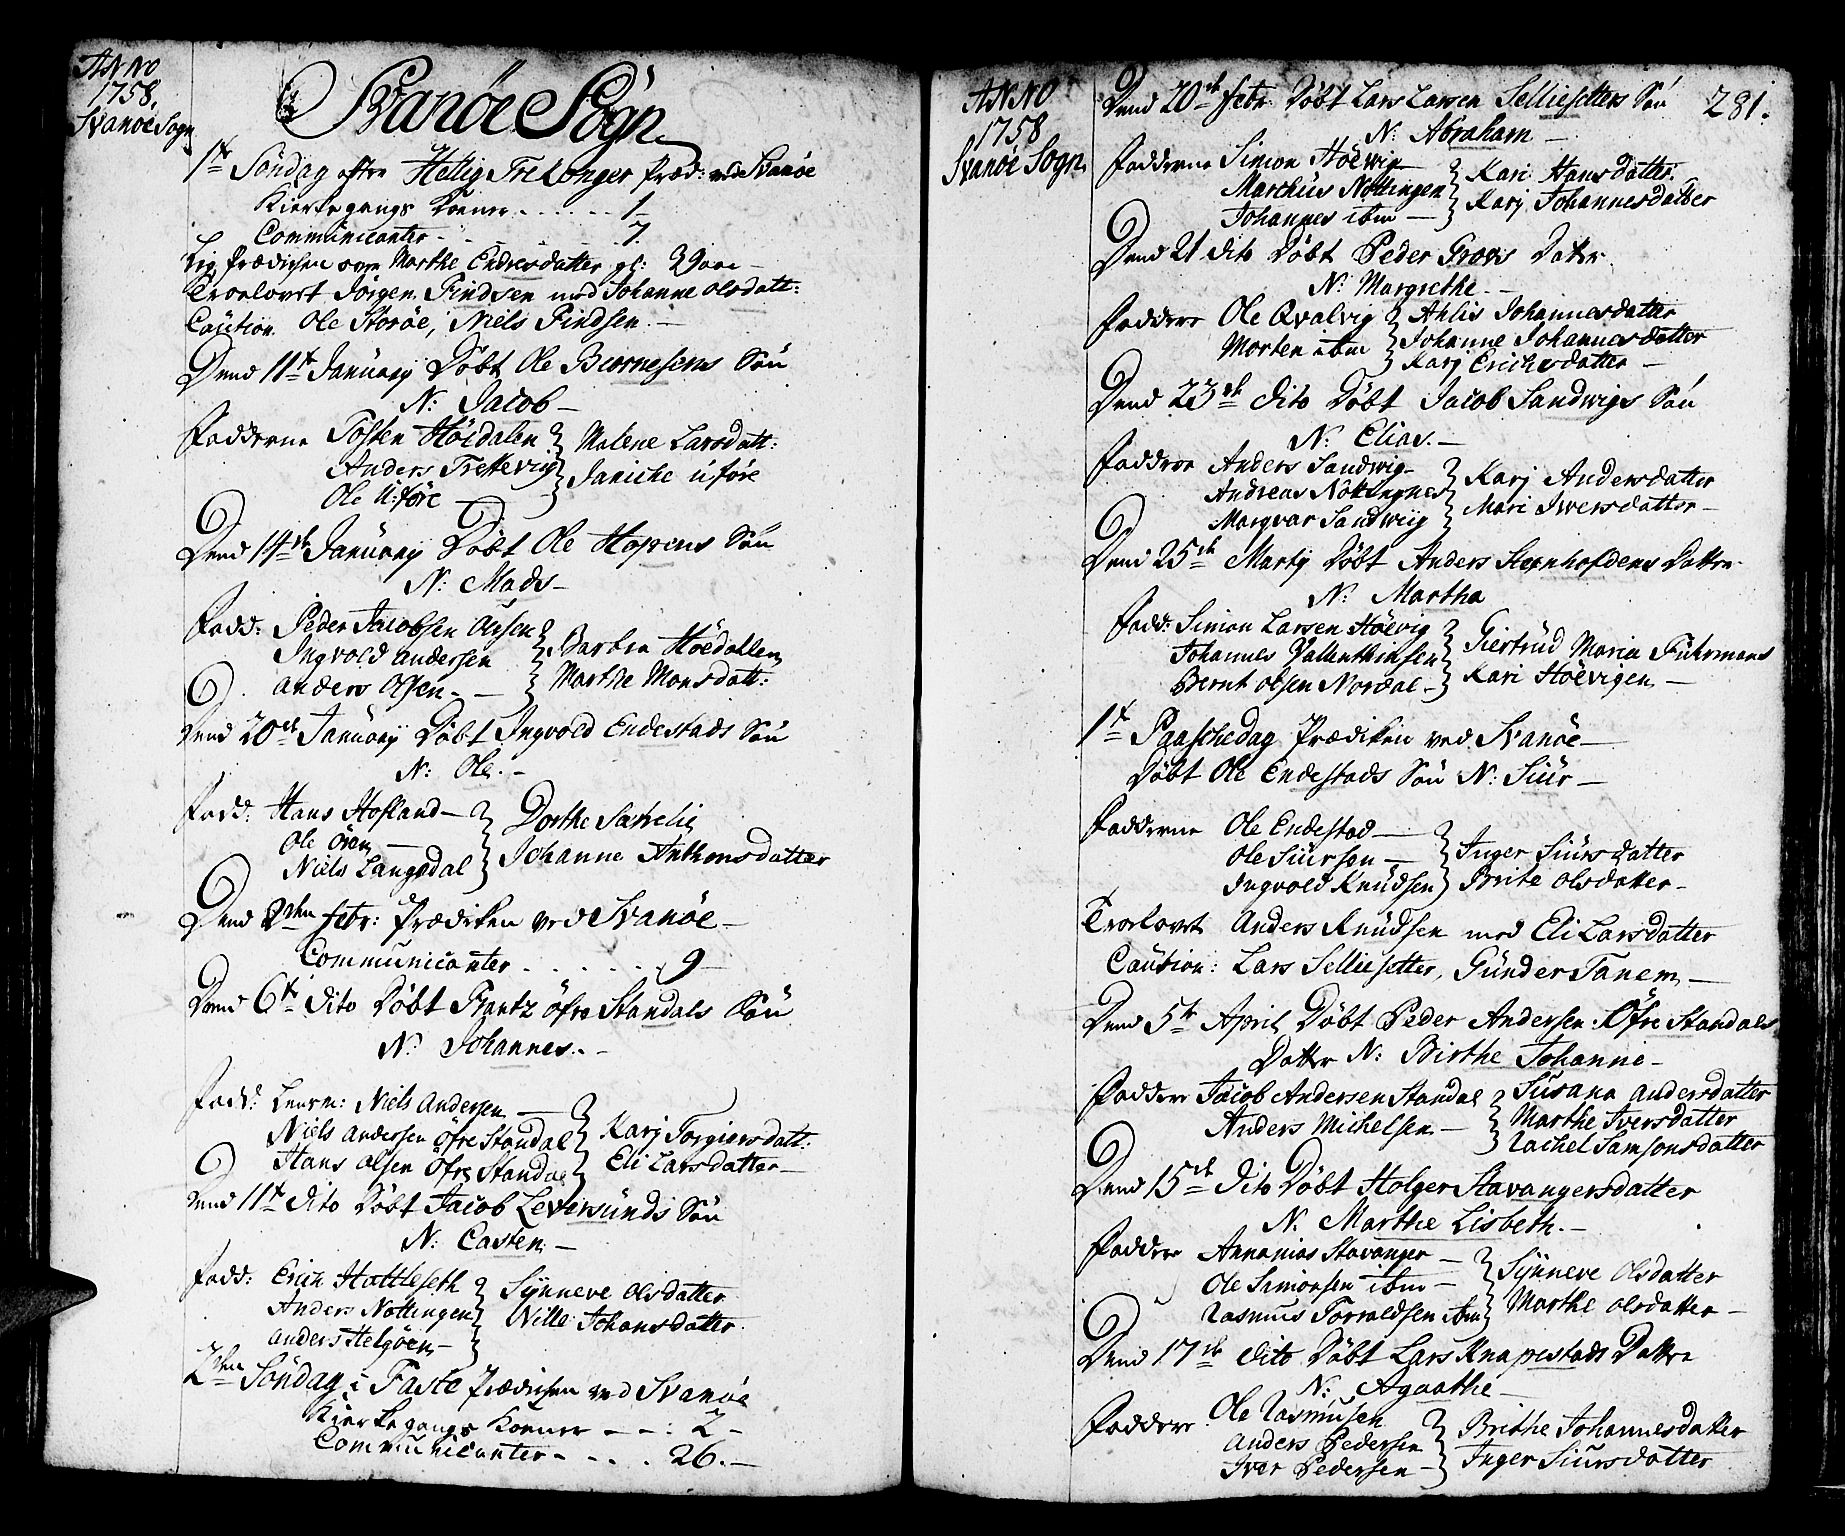 ANNO
1758.
Svanöe Sogn
Svanöe Sogn
1te Söndag efter Hellig Tre Konger Præd: ved Svanöe
Kierkegangs Koener . . . . . . 1
Communicanter . . . . . . 7.
Lig Prædichen over Marthe Endresdatter gl: 29 aar
Troelovet Jörgen Findsen med Johanne Olsdatt:
Caution Ole Storöe, Niels Findsen.
Dend 11te January Döbt Ole Biornesens Sön
N: Jacob
Fadderne Tosten Höidalen Malene Larsdatt:
Anders Trettevig Janiche Uföre
Ole Uföre
Dend 14de January Döbt Ole Hopens Sön
N: Mads
Fadd: Peder Jacobsen Ausen Barbra Höedallen
Ingvold Andersen Marthe Monsdatt:
Anders Olsen
Dend 20de January Döbt Ingvold Endestads Sön
N: Ole.
Fadd: Hans Hofland Dorthe Savelie
Ole Ören Johanne Anthonsdatter
Niels Langedal
Dend 2den Febr: Prædiken ved Svanöe
Communicanter . . . . . . 9
Dend 6te dito Döbt Frantz Öfre Standals Sön
N: Johannes.
Fadd: Lensm: Niels Andersen Karj Torgiersdatt:
Niels Andersen Öfre Standal Eli Larsdatter
Hans Olsen Öfre Standal
Dend 11te dito Döbt Jacob Leversunds Sön
N: Casten
Fadd: Erich Hattleseth Synneve Olsdatter
Anders Nottingen Nille Johansdatter
Anders Helgöen
2den Söndag i Faste Prædichen ved Svanöe
Kierkegangs Konner . . : 2
Communicanter . . . . 26.
ANNO
1758
Svanöe Sogn
281.
Dend 20de Febr: Döbt Lars Larsen Selliesetters Sön
N: Abraham
Fadderne Simon Höevig Kari Hansdatter
Marchus Nottingen Karj Johannesdatter
Johannes ibm
Dend 21 dito Döbt Peder Groves Dater
N: Margrethe.
Faddere Ole Qvalvig Ahlis Johannesdatter
Morten ibm Johanne Johannesdatter
Karj Erichsdatter
Dend 23de dito Döbt Jacob Sandwigs Sön
N: Elias.
Faddere Anders Sandwig Karj Andersdatter
Andreas Nöttingnes Mari Iwersdatter
Marqvar Sandwiig
Dend 25de Martij Döbt Anders Steenhofdens Datter
N: Martha
Fadd: Simon Larsen Höevig Giertrud Maria Fuhrmans
Johannes Vallentinsen Kari Höevigen
Bernt Olsen Nordal
1te Paaschedag Prædiken ved Svanöe
Döbt Ole Endestads Sön N: Siur
Fadderne Ole Endestad Inger Siursdatter
Ole Siursen Brite Olsdatter
Ingvold Knudsen
Troelovet Anders Knudsen med Eli Larsdatter
Caution: Lars Selliesetter, Gunder Tanem
Dend 5te April Döbt Peder Andersen Öfre Standals
Datter N: Birthe Johanne
Faddere Jacob Andersen Standal Susana Andersdatter
Anders Michelsen Marthe Iversdatter
Rachel Samsonsdatter
Dend 15de dito Döbt Holger Stavangersdatter
N: Marthe Lisbeth.
Faddere Annanias Stavanger Synneve Olsdatter
Ole Simonsen ibm Marthe Olsdatter
Rasmus Torvaldsen ibm
Dend 17de dito Döbt Lars Knapestads Datter
N: Agaathe
Faddere Ole Rasmusen Brithe Johannesdatter
Anders Pedersen Inger Siursdatter
Iver Pedersen